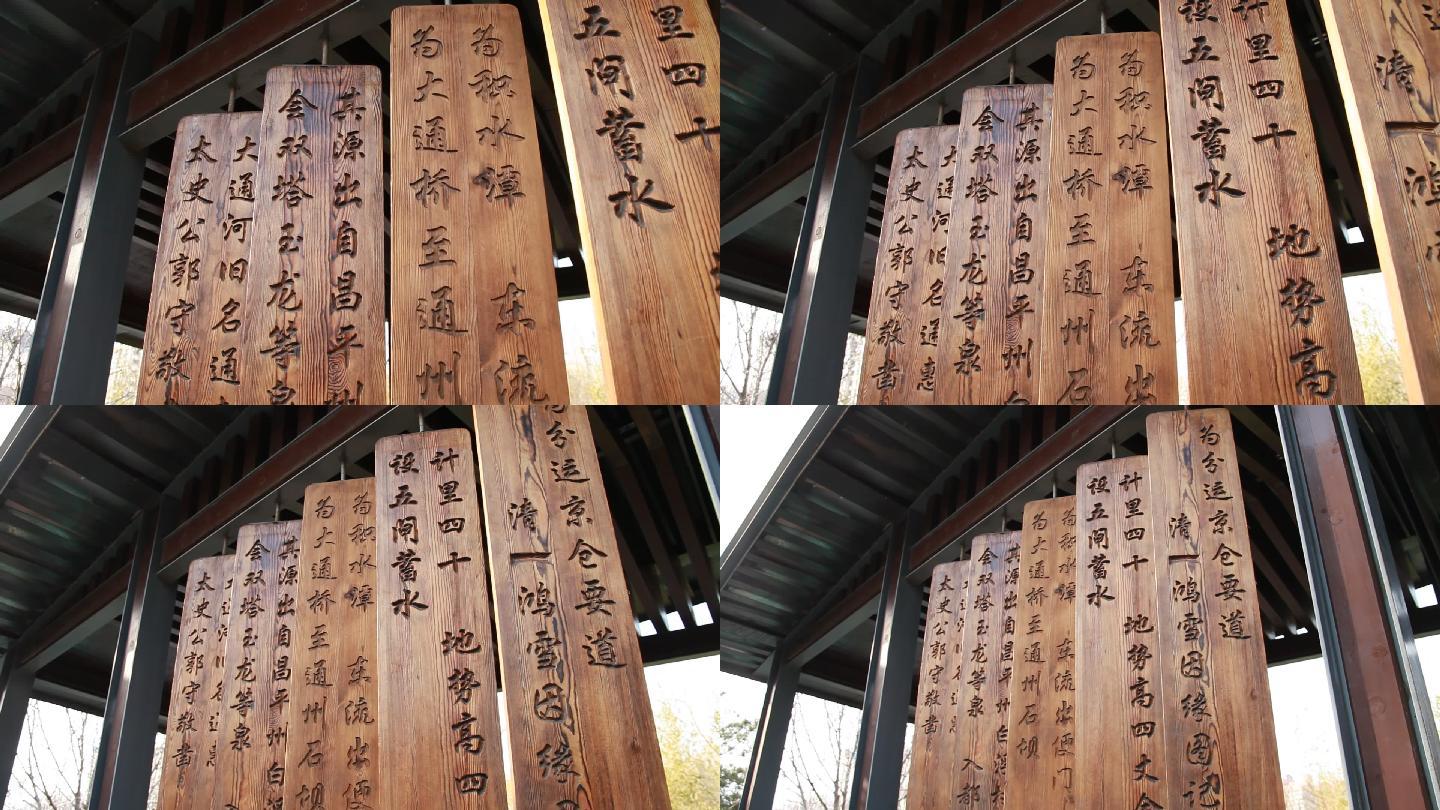 大通河旧名通
太史公郭守敬
其源出自昌平州
会双塔玉龙等泉
为积水潭 东流
为大通桥至通州
里四十
五闸蓄水
大通河旧名通惠
太史公郭守敬凿
其源出自昌平州白
会双塔玉龙等泉
为积水潭 东流出
为大通桥至通州石
计里四十 地势高
设五闸蓄水
清一鸿
太史公郭守敬凿
其源出自昌平州白
会双塔玉龙等泉 入
为积水潭 东流出便
为大通桥至通州石坝
计里四十 地势高四
设五闸蓄水
分运京仓要道
清一鸿雪因缘
太史公郭守敬凿
其源出自昌平州白浮村
会双塔玉龙等泉 入都
为积水潭 东流出便门
为大通桥至通州石坝
计里四十 地势高四丈
设五闸蓄水
为分运京仓要道
清一鸿雪因缘图记